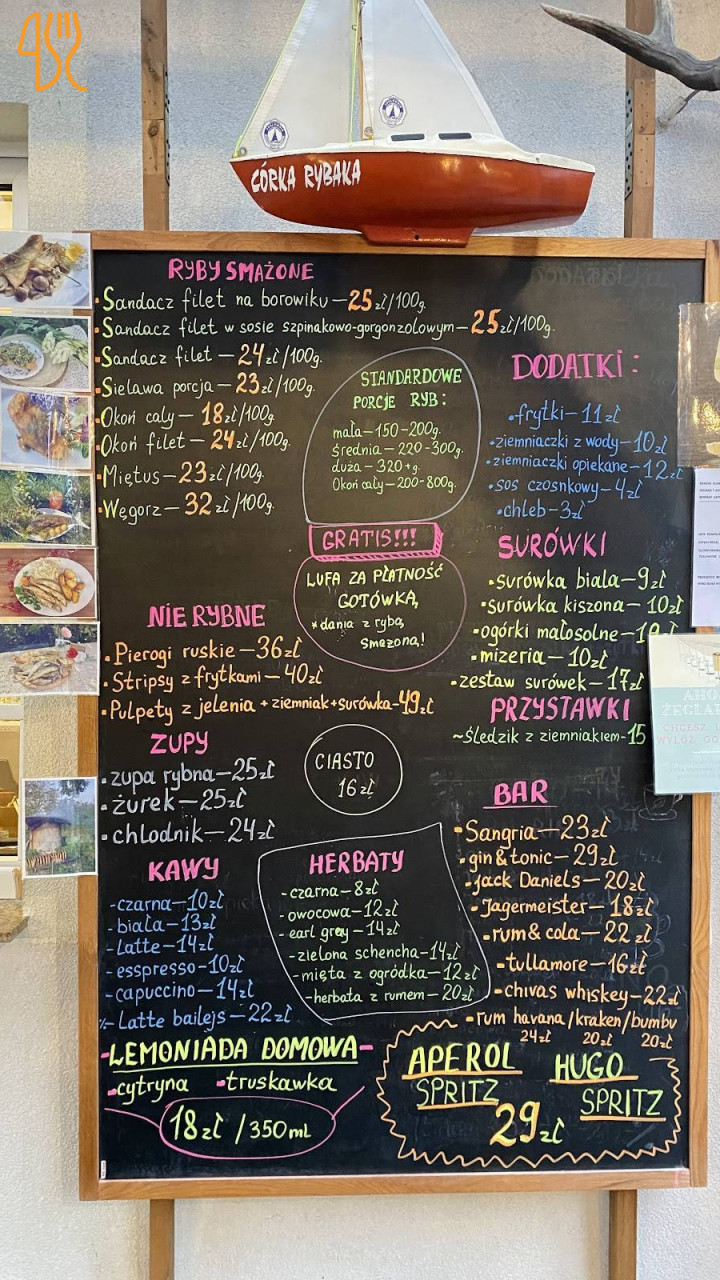 CÓRKA RYBAKA
RYBY SMAŻONE
•Sandacz filet na borowiku—25zł/100g.
•Sandacz filet w sosie szpinakowo-gorgonzolowym—25zł/100g.
•Sandacz filet—24zł/100g.
•Sielawa porcja—23zł/100g.
•Okoń cały—18zł/100g.
•Okoń filet—24zł/100g.
•Miętus—23zł/100g.
•Węgorz—32zł/100g.
STANDARDOWE
PORCJE RYB:
mała—150-200g.
średnia—220-300g.
duża—320+g.
Okoń cały—200-800g.
GRATIS!!!
LUFA ZA PŁATNOŚĆ
GOTÓWKĄ,
*dania z rybą
smażoną!
DODATKI:
•frytki—11zł
•ziemniaczki z wody—10zł
•ziemniaczki opiekane—12zł
•sos czosnkowy—4zł
•chleb—3zł
SURÓWKI
•surówka biała—9zł
•surówka kiszona—10zł
•ogórki małosolne—
•mizeria—10zł
•zestaw surówek—17zł
PRZYSTAWKI
~śledzik z ziemniakiem-15
NIE RYBNE
•Pierogi ruskie—36zł
•Stripsy z frytkami—40zł
•Pulpety z jelenia +ziemniak+surówka-49zł
ZUPY
•zupa rybna—25zł
•żurek—25zł
•chłodnik—24zł
CIASTO
16zł
KAWY
-czarna—10zł
-biała—13zł
-Latte—14zł
-esspresso-10zł
-capuccino—14zł
%-Latte bailejs—22zł
HERBATY
-czarna—8zł
-owocowa—12zł
-earl grey—14zł
-zielona schencha-14zł
-mięta z ogródka—12zł
-herbata z rumem—20zł
BAR
•Sangria—23zł
•gin&tonic—29zł
•Jack Daniels—20zł
•Jagermeister—18zł
•rum& cola—22zł
•tullamore—16zł
•chivas whiskey—22zł
•rum havana/kraken/bumbu
24zł 20zł 20zł
-LEMONIADA DOMOWA-
-cytryna -truskawka
18zł/350mL
APEROL
SPRITZ
HUGO
SPRITZ
29zł